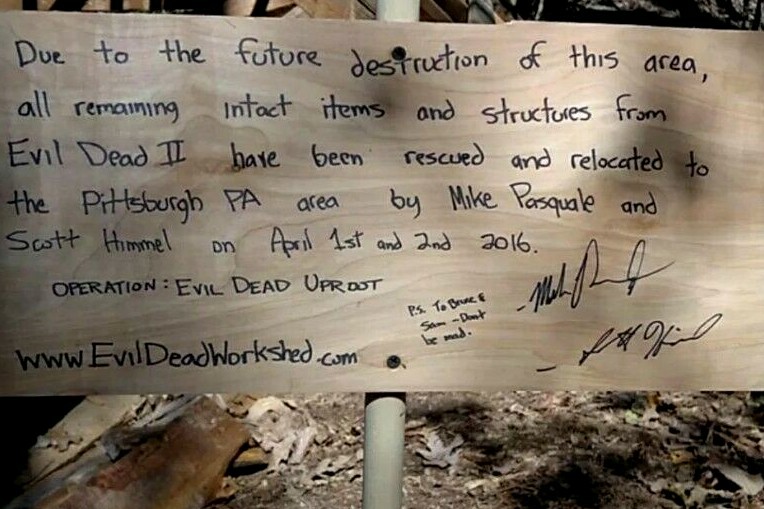 Due to the future destruction of this area,
all remaining intact items and structures from
Evil Dead II have been rescued and relocated to
the Pittsburgh PA area by Mike Pasquale and
Scott Himmel on April 1st and 2nd 2016.
OPERATION: EVIL DEAD UPROOT
P.S. To Bruce &
Sam - Don't
be mad.
www.EvilDeadWorkshed.com